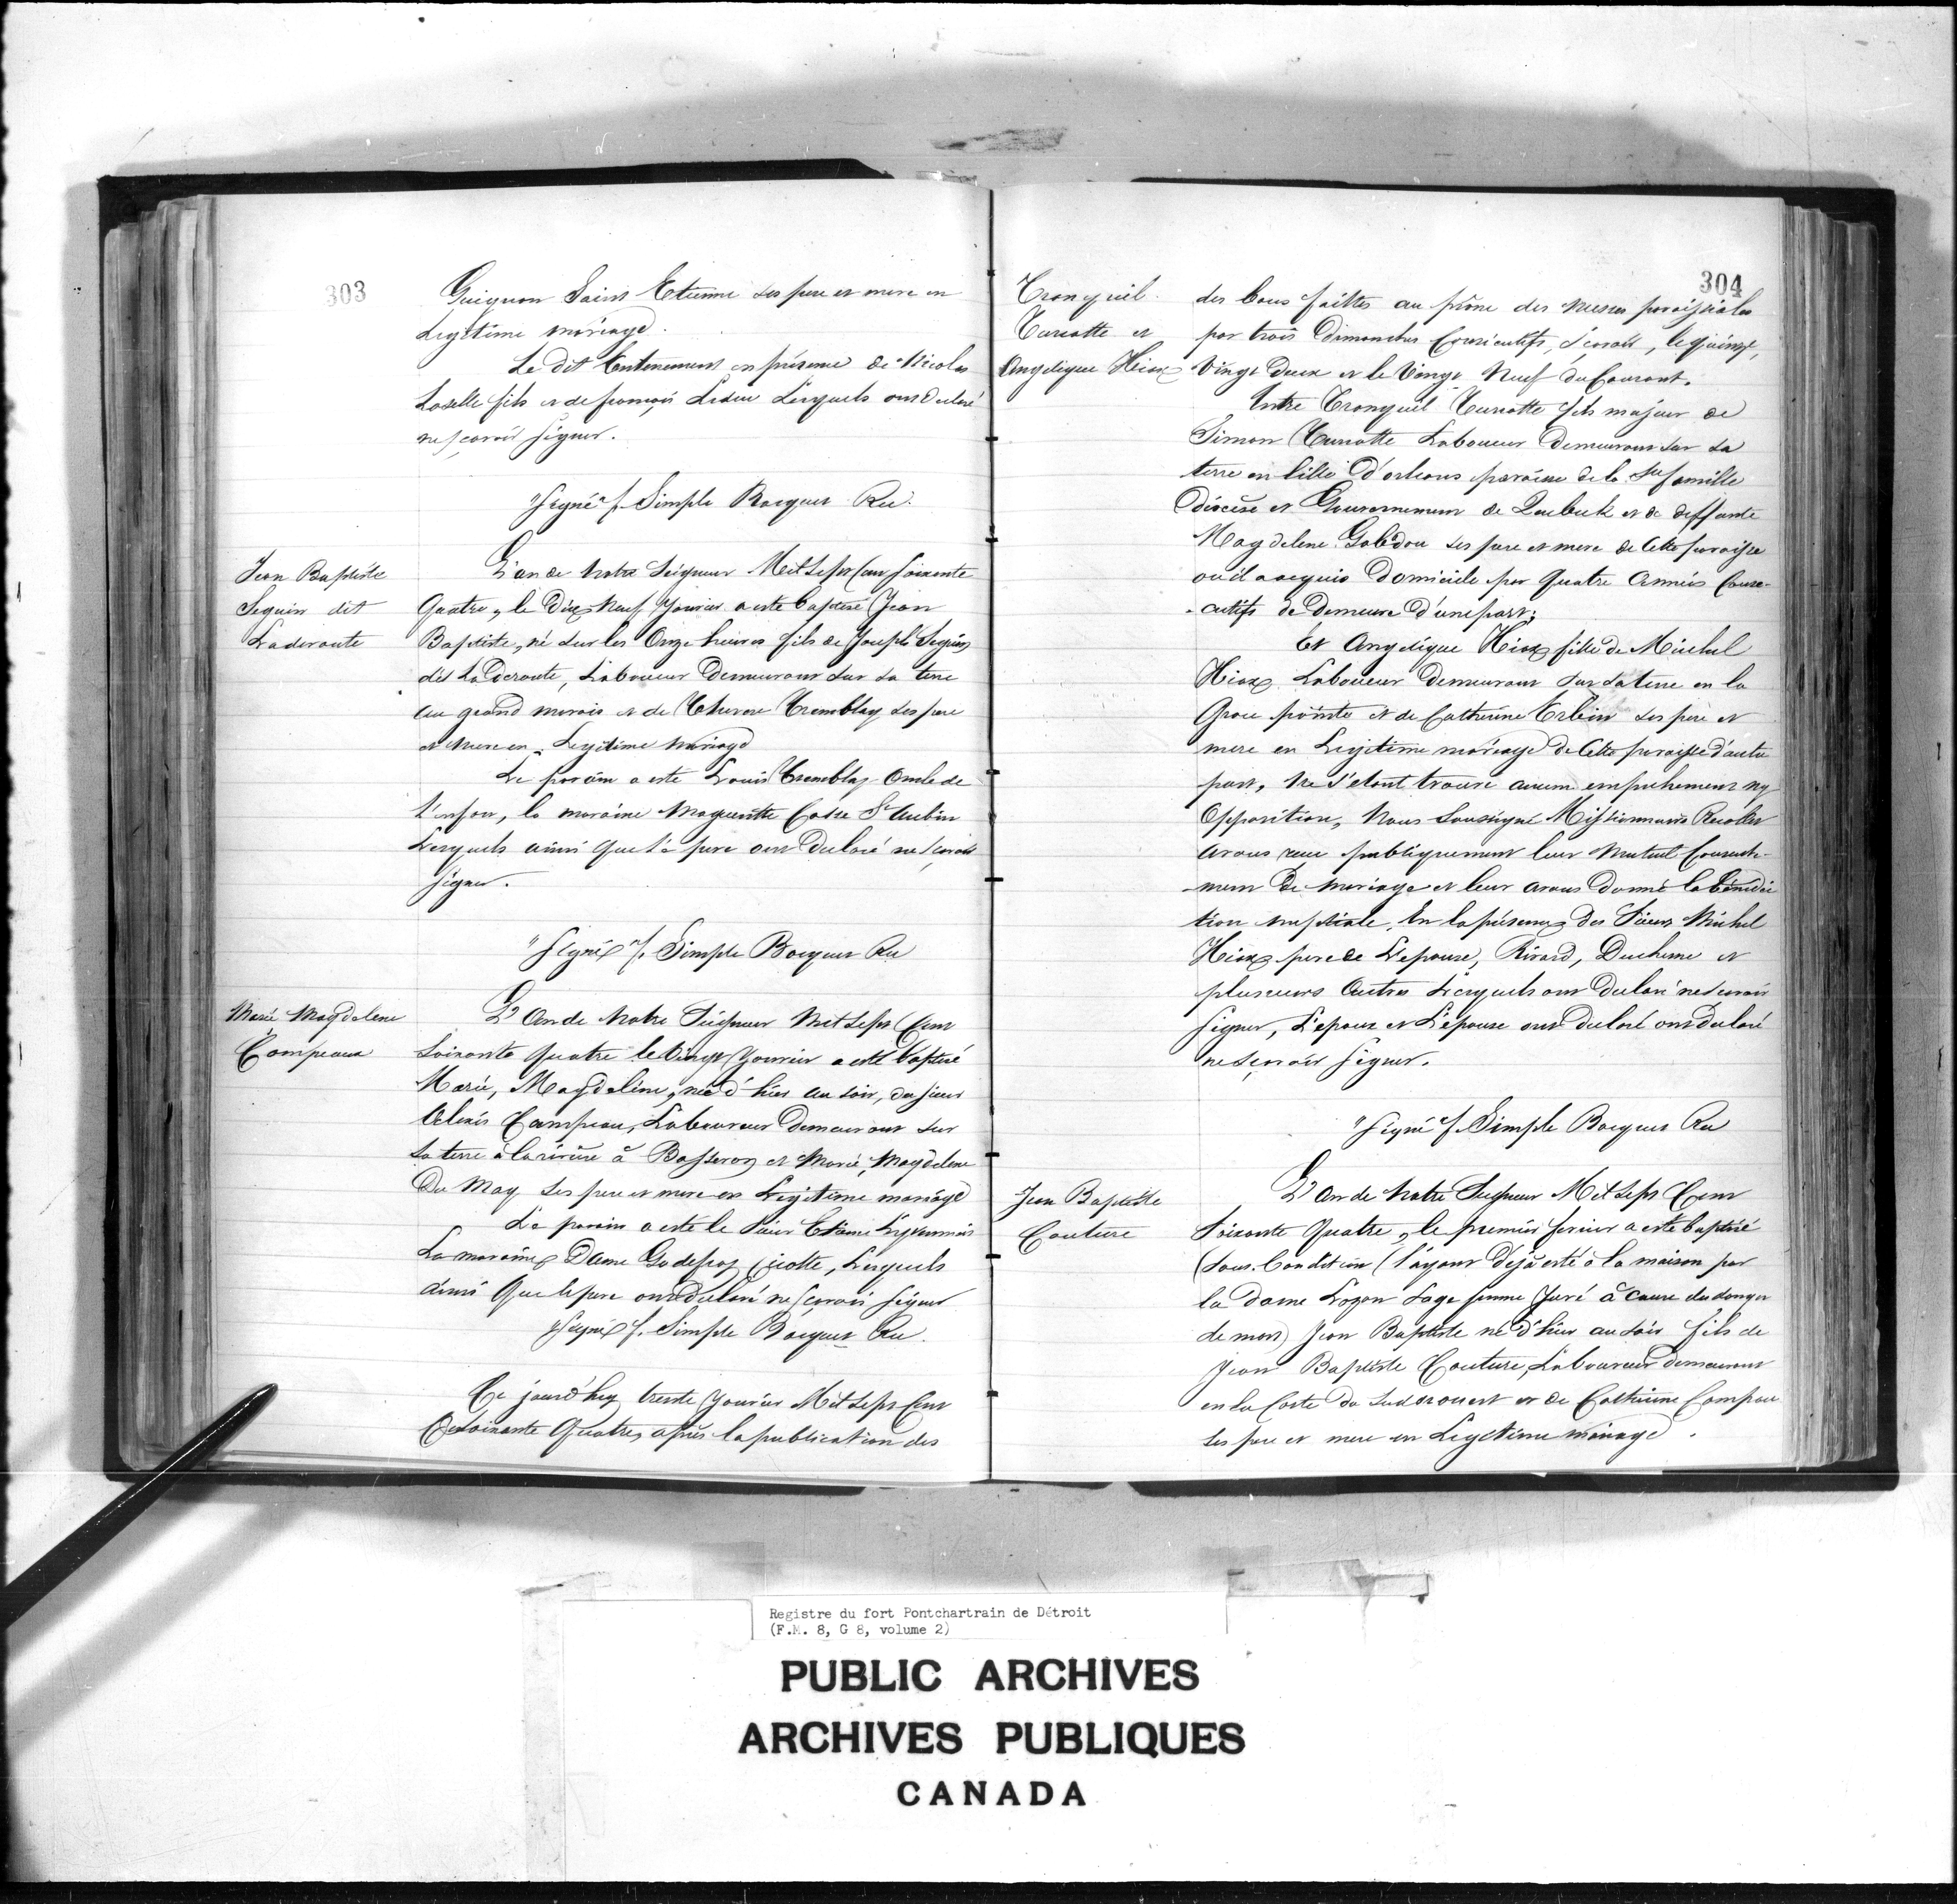 303
Guignon Saint Etienne ses pere et mere en
Legitime mariage.
Le dit Enterrement en présence de Nicolas
Laselle fils et de françois Leduc Lesquels ont declaré
ne sçavoir signer.
"Signé" f. Simple Bocquet Rec.
Jean Baptiste
Seguin dit
Laderoute
L'an de Notre Seigneur Mil Sept Cent Soixante
Quatre, le Dix Neuf Janvier a esté baptisé Jean
Baptiste, né sur les Onze heures fils de Joseph Seguin
dit La Deroute, Laboureur Demeurant sur sa terre
au grand marais et de Therese Tremblay ses pere
et mere en Legitime mariage
Le parain a esté Louis Tremblay Oncle de
l'enfant, la maraine Marguerite Casse St Aubin
Lesquels ainsi que le pere ont Declaré ne sçavoir
signer.
"Signé" f. Simple Bocquet Rec
Marie Magdelene
Campeaux
L'An de Notre Seigneur Mil Sept Cent
Soixante Quatre le vingt Janvier a esté baptisé
Marie, Magdeleine, née d'hier au soir, du sieur
Alexis Campeau, Laboureur Demeurant sur
sa terre à la riviere à Basseron et Marie, Magdelene
Du May ses pere et mere en Legitime mariage
Le parain a esté le Sieur Etienne
La maraine Dame Godefroy Cicotte, Lesquels
ainsi Que le pere ont declaré ne sçavoir signer
"Signé" f. Simple Bocquet Rec.
Ce jourd'huy trente Janvier Mil Sept Cent
Soixante Quatre, après la publication des
304
Tranquil
Turcotte et
Angelique Hiax
des bans faittes au prône des messes paroissiales
par trois Dimanches Consécutifs, sçavoir, le quinze,
Vingt Deux et le Vingt Neuf du Courant.
Entre Tranquil Turcotte fils majeur de
Simon Turcotte Laboureur Demeurant sur sa
terre en l'ille d'orleans paroisse de la Ste famille
diocèse et Gouvernement de Quebek et de deffunte
Magdelene Gabidou ses pere et mere de Cette paroisse
où il a acquis Domicile par Quatre Années Conse-
-cutifs de Demeure d'une part;
Et Angelique Hiax fille de Michel
Hiax Laboureur Demeurant sur sa terre en la
Groce pointe et de Catherine Erbin ses pere et
mere en Legitime mariage de Cette paroisse d'autre
part, Ne s'etant trouvé aucun empechement ny
Opposition, Nous Soussigné Missionnaire Recollet
avons reçu publiquement leur mutuel Consente-
-ment de mariage et leur avons donné la bénédic
tion nuptiale, En la présence des Sieurs Michel
Hiax pere de L'epouse, Rivard, Duchene et
plusieurs Autres Lesquels ont declaré ne sçavoir
signer, L'epoux et L'épouse ont declaré ont declaré
ne sçavoir signer.
"Signé" f. Simple Bocquet Rec
Jean Baptiste
Couture
L'An de Notre Seigneur Mil Sept Cent
Soixante Quatre, le premier fevrier a esté baptisé
(sous Condition (l'ayant déjà esté à la maison par
la Dame Lozon Sage femme Juré à Cause du danger
de mort) Jean Baptiste né d'hier au soir fils de
Jean Baptiste Couture, Laboureur demeurant
en la Coste du Sud ouest et de Catherine Campau
ses pere et mere en Legitime mariage.
Registre du fort Pontchartrain de Détroit
(F.M. 8, G 8, volume 2)
PUBLIC ARCHIVES
ARCHIVES PUBLIQUES
CANADA